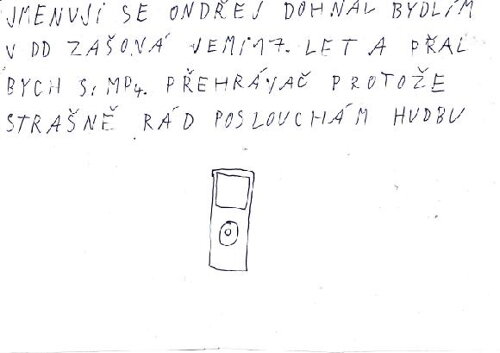 JMENUJI SE ONDŘEJ DOHNAL BYDLÍM
V DD ZAŠOVÁ JEMI 17. LET A PŘAL
BYCH SI MP4. PŘEHRÁVAČ PROTOŽE
STRAŠNĚ RÁD POSLOUCHÁM HUDBU